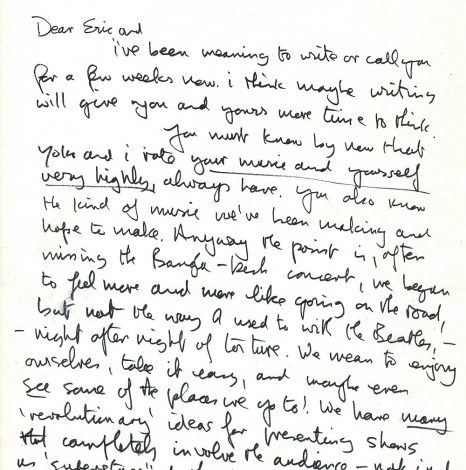 Dear Eric and
i've been meaning to write or call you
for a few weeks now. i think maybe writing
will give you and yours more time to think.
You must know by now that
Yoko and i rate your music and yourself
very highly, always have. You also know
the kind of music we've been making and
hope to make. Anyway the point is, after
missing the Bangla-desh concert, we began
to feel more and more like going on the road,
but not the way I used to with the Beatles, -
- night after night of torture. We mean to enjoy
ourselves, take it easy, and maybe even
see some of the places we go to! We have many
'revolutionary' ideas for presenting shows
that completely involve the audience - not